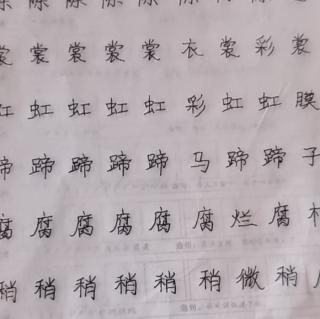 裳裳裳裳裳衣裳彩裳
虹虹虹虹虹彩虹虹膜
蹄蹄蹄蹄蹄马蹄蹄子
腐腐腐腐腐腐烂腐
稍稍稍稍稍稍微稍